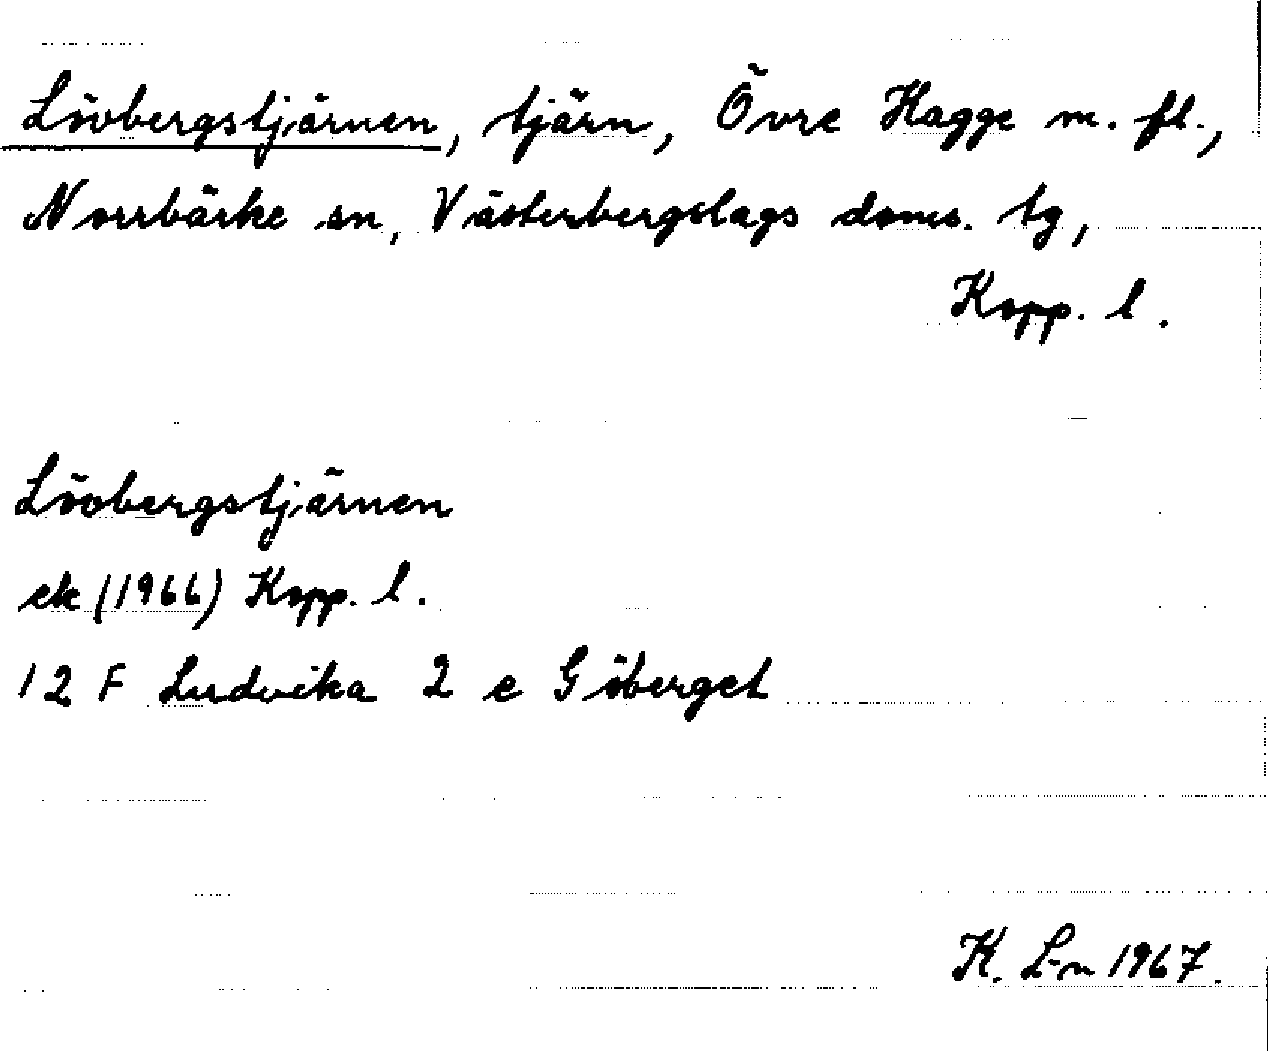 Lövbergstjärnen, tjärn, Övre Hagge m. fl.,
Norrbärke sn, Västerbergslags doms. tg,
Kopp. l.
Lövbergstjärnen
ek (1966) Kopp. l.
12 F Ludvika 2 e Göberget
K. L-n 1967.